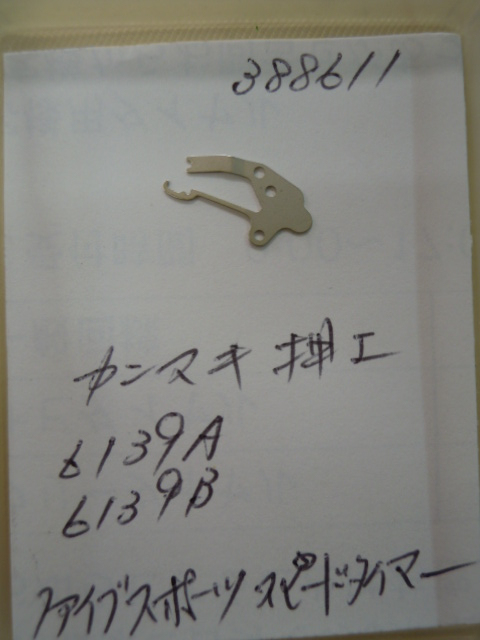 388611
カンヌキ押エ
6139A
6139B
ファイブスポーツスピードタイマー